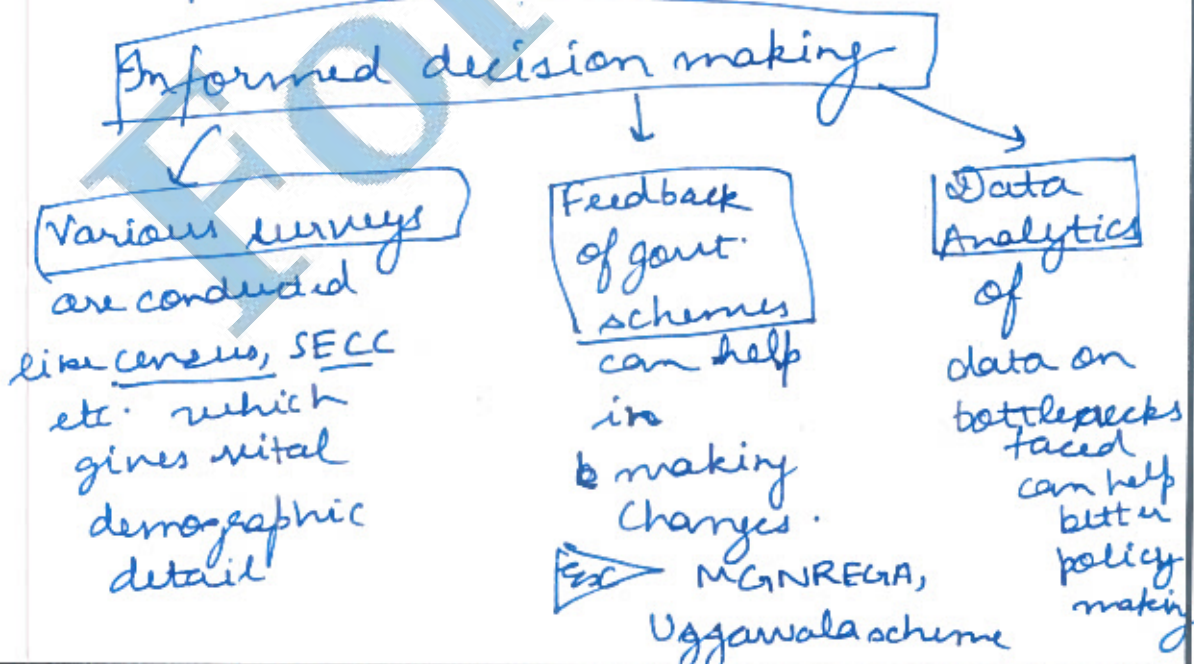 Informed decision making
Various surveys
are conducted
like census, SECC
etc. which
gives vital
demographic
detail
Feedback
of govt.
schemes
can help
in
making
changes.
Ex MGNREGA,
Uggawala scheme
Data
Analytics
of
data on
bottlenecks
faced
can help
better
policy
making
For